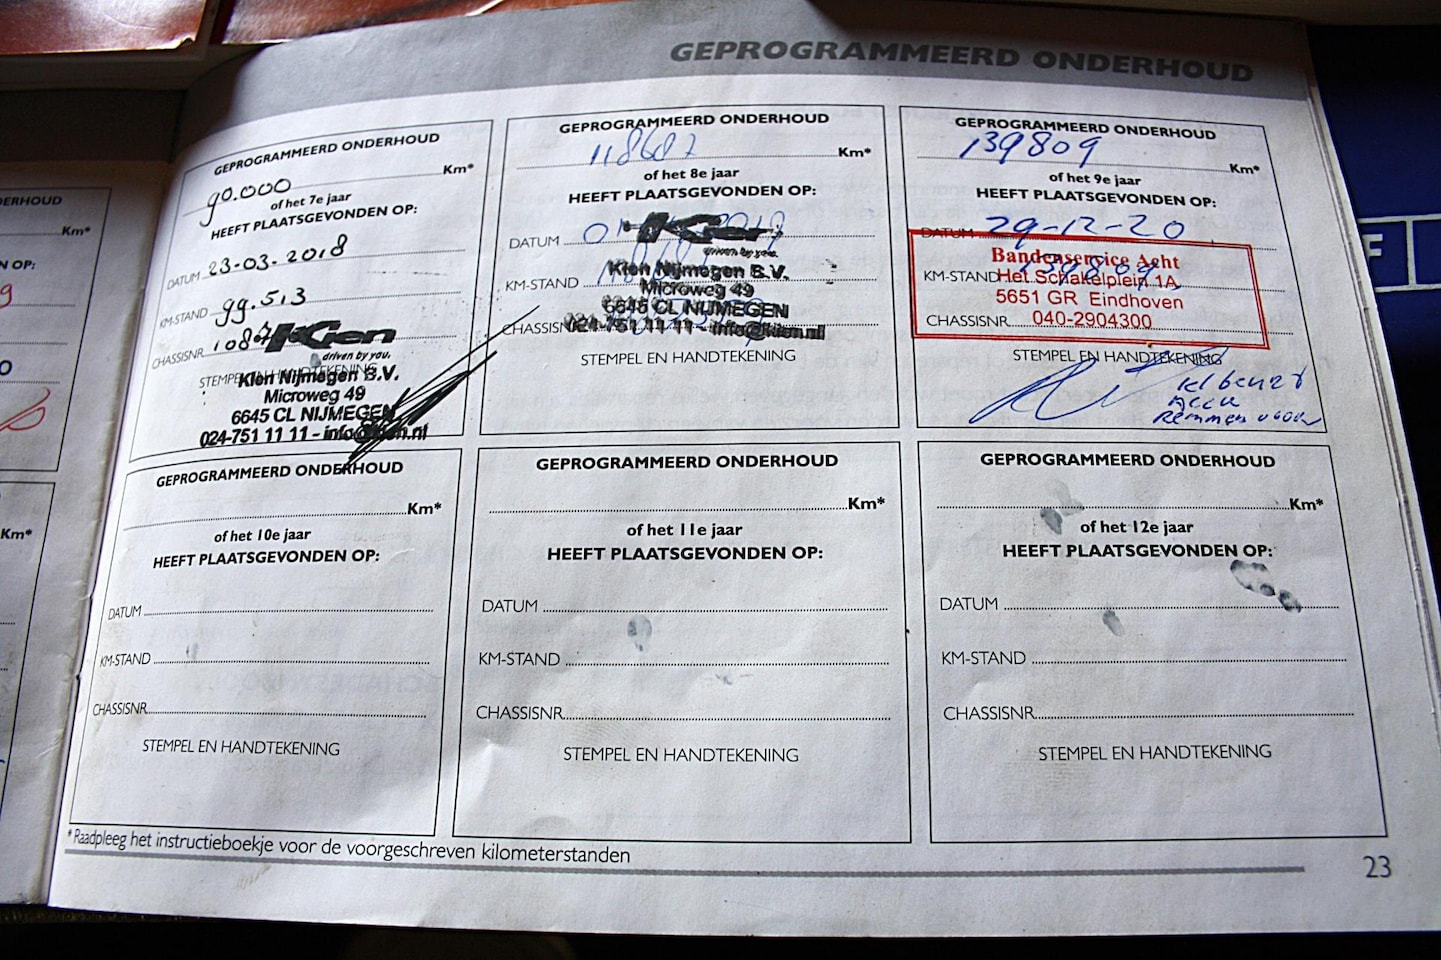 GEPROGRAMMEERD ONDERHOUD
GEPROGRAMMEERD ONDERHOUD
90.000 Km*
of het 7e jaar
HEEFT PLAATSGEVONDEN OP:
DATUM 23-03-2018
KM-STAND 99.513
CHASSISNR
Kien
driven by you.
STEMPEL EN HANDTEKENING
Kien Nijmegen B.V.
Microweg 49
6645 CL NIJMEGEN
024-751 11 11 - info@kien.nl
GEPROGRAMMEERD ONDERHOUD
118687 Km*
of het 8e jaar
HEEFT PLAATSGEVONDEN OP:
DATUM
Kien
driven by you.
Kien Nijmegen B.V.
KM-STAND
Microweg 49
6645 CL NIJMEGEN
CHASSISNR
024-751 11 11 - info@kien.nl
STEMPEL EN HANDTEKENING
GEPROGRAMMEERD ONDERHOUD
139809 Km*
of het 9e jaar
HEEFT PLAATSGEVONDEN OP:
DATUM 29-12-20
Bandenservice Acht
KM-STAND 139809
Het Schakelplein 1A
5651 GR Eindhoven
CHASSISNR
040-2904300
STEMPEL EN HANDTEKENING
Remmen
GEPROGRAMMEERD ONDERHOUD
Km*
of het 10e jaar
HEEFT PLAATSGEVONDEN OP:
DATUM
KM-STAND
CHASSISNR
STEMPEL EN HANDTEKENING
GEPROGRAMMEERD ONDERHOUD
Km*
of het 11e jaar
HEEFT PLAATSGEVONDEN OP:
DATUM
KM-STAND
CHASSISNR
STEMPEL EN HANDTEKENING
GEPROGRAMMEERD ONDERHOUD
Km*
of het 12e jaar
HEEFT PLAATSGEVONDEN OP:
DATUM
KM-STAND
CHASSISNR
STEMPEL EN HANDTEKENING
* Raadpleeg het instructieboekje voor de voorgeschreven kilometerstanden
23
Km*
Km*
F